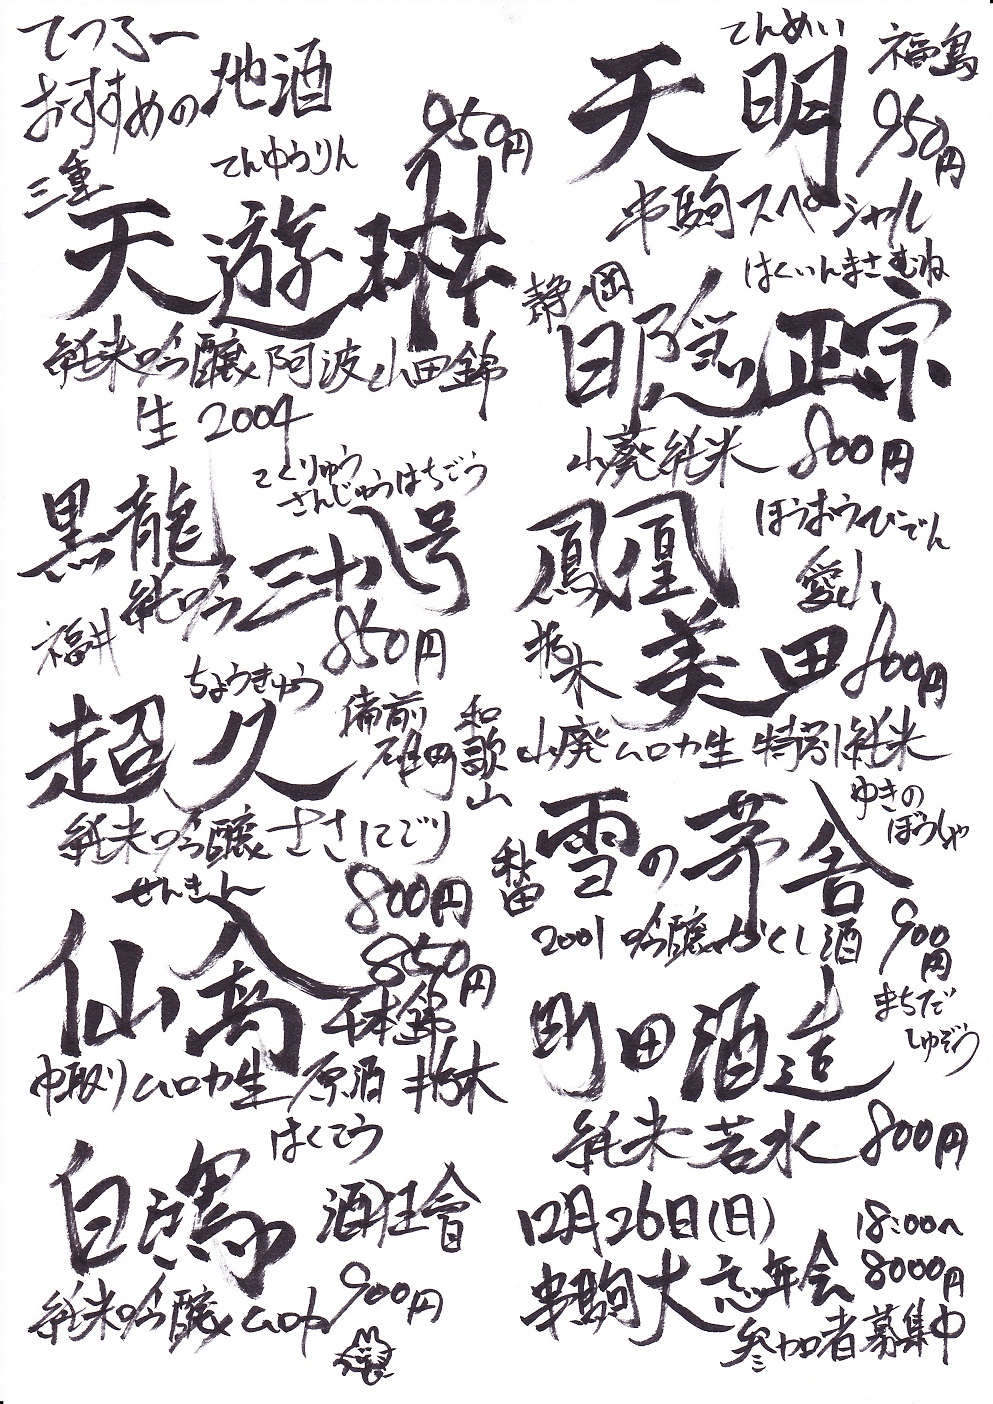 てつろー
おすすめの地酒
三重
てんゆうりん
950円
天遊琳
純米吟醸阿波山田錦
生 2004
こくりゅう
さんじゅうはちごう
黒龍
純吟三十八号
福井
850円
ちょうきゅう
超久
備前
雄町
和歌山
純米吟醸ささにごり
800円
せんきん
仙禽
850円
千本錦
中取りムロカ生原酒 栃木
はくこう
白鴻
酒狂會
純米吟醸ムロカ
900円
てんめい
天明
福島
950円
串駒スペシャル
静岡
はくいんまさむね
白隠正宗
山廃純米 800円
ほうおうびでん
鳳凰
愛山
栃木
美田
800円
山廃ムロカ生特別純米
ゆきの
ぼうしゃ
秋田
雪の茅舎
2001 吟醸かくし酒
900円
まちだ
しゅぞう
町田酒造
純米若水 800円
12月26日(日)
18:00〜
串駒大忘年会
8000円
参加者募集中